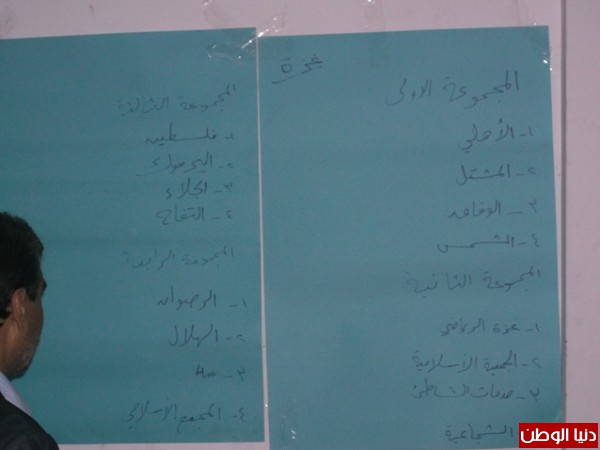 غزة
المجموعة الاولى
١- الأهلي
٢- المشتل
٣-
٤- الشمس
المجموعة الثانية
١- غزة الرياضي
٢- الجمعية الأسلامية
٣- خدمات الشاطئ
الشجاعية
المجموعة الثالثة
١- فلسطين
٢- اليرموك
٣- الجلاء
٤- التفاح
المجموعة الرابعة
١- الرضوان
٢- الهلال
٣-
٤- المجمع الاسلامي
دنيا الوطن